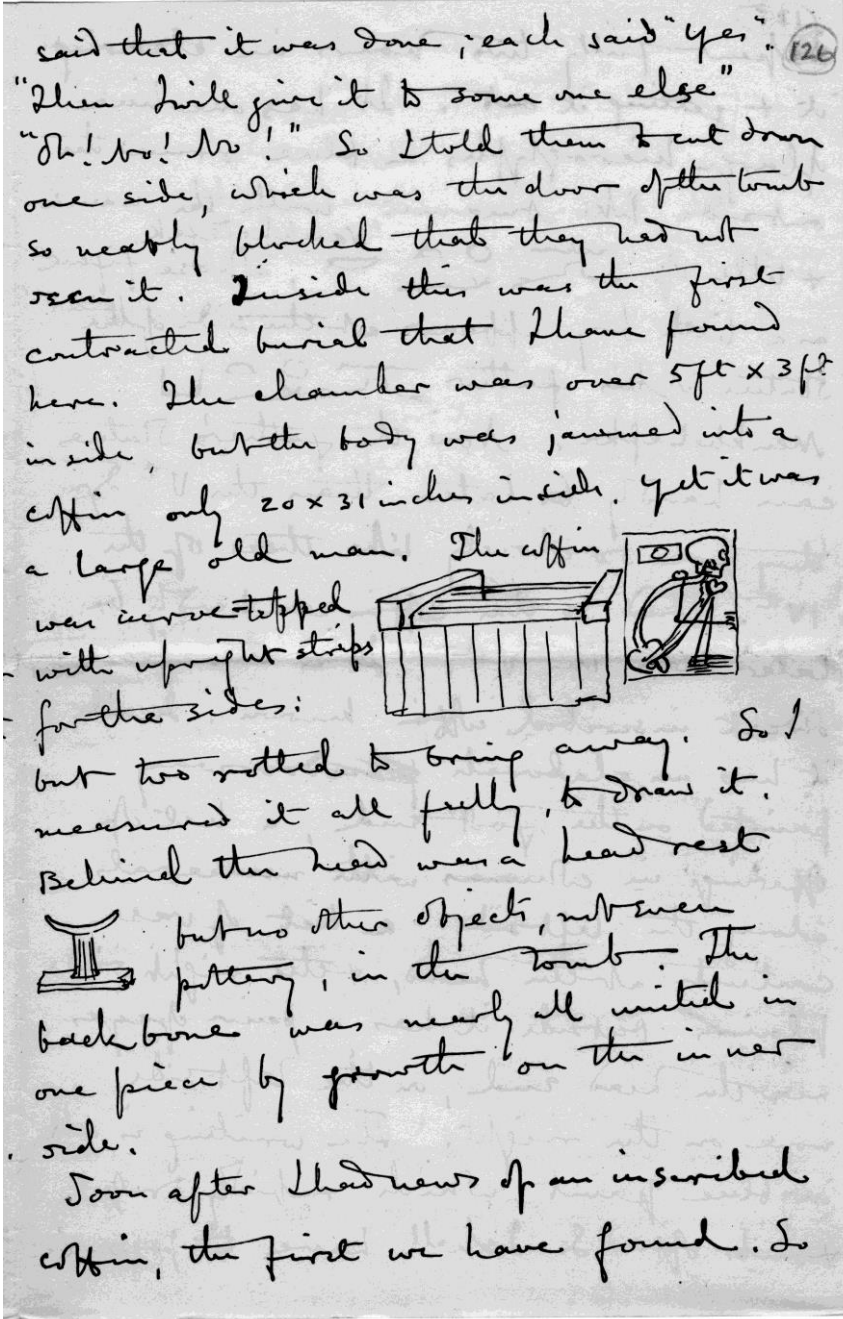 126
said that it was done; each said "yes".
"Then I will give it to some one else"
"Oh! No! No!" So I told them to cut down
one side, which was the door of the tomb
so neatly blocked that they had not
seen it. Inside this was the first
contracted burial that I have found
here. The chamber was over 5ft x 3ft
inside, but the body was jammed into a
coffin only 20 x 31 inches inside, yet it was
a large old man. The coffin
was curve-topped
with upright strips
for the sides:
but too rotted to bring away. So I
measured it all fully, to draw it.
Behind the head was a head rest
but no other objects, not even
pottery, in the tomb. The
backbone was nearly all united in
one piece by growth on the inner
side.
Soon after I had news of an inscribed
coffin, the first we have found. So